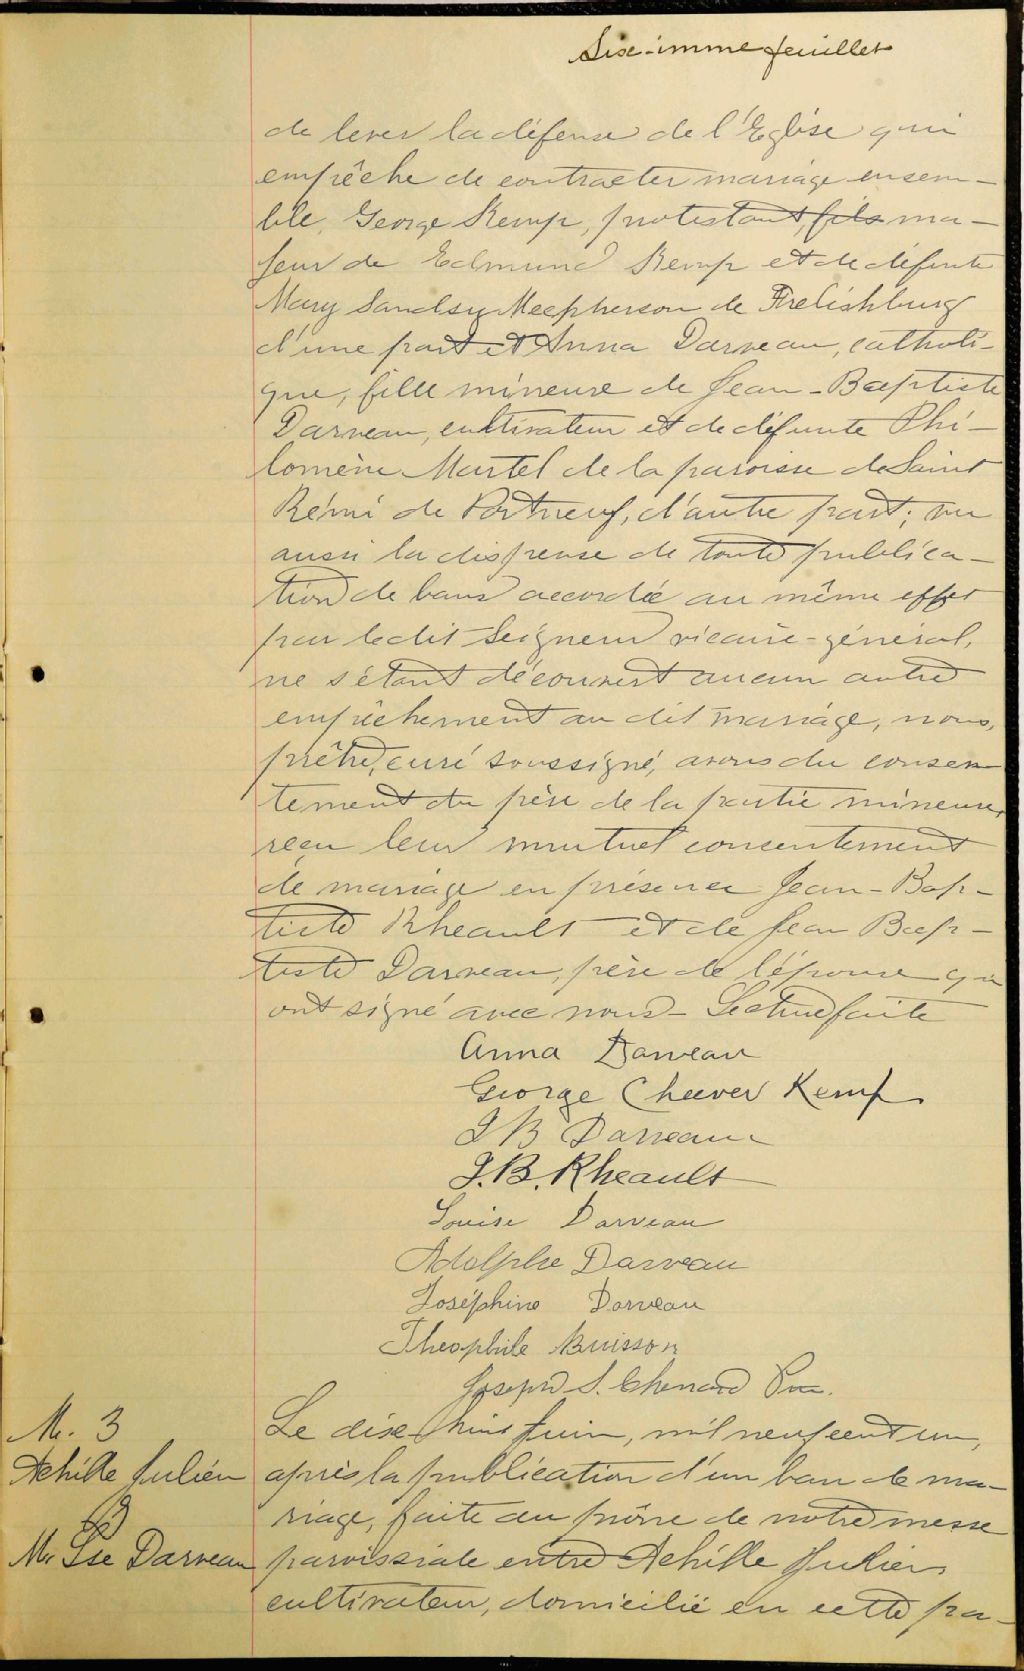 Sixe-imme feuillet
de lever la défense de l'Eglise qui
empêche de contracter mariage ensem-
ble, George Kemp, protestant, fils ma-
jeur de Edmund Kemp et de défunte
Mary Sandsy Meepherson de Frelishburg
d'une part et Anna Darveau, catholi-
que, fille mineure de Jean-Baptiste
Darveau, cultivateur et de défunte Phi-
lomène Martel de la paroisse de Saint
Rémi de Portneuf, d'autre part; vu
aussi la dispense de toute publica-
tion de bans accordée au même effet
par le dit Seigneur vicaire-général,
ne s'étant découvert aucun autre
empêchement au dit mariage, nous,
prêtre, curé soussigné, avons du consen-
tement du père de la partie mineure,
reçu leur mutuel consentement
de mariage en présence Jean-Bap-
tiste Rheault et de Jean Bap-
tiste Darveau, père de l'épouse qui
ont signé avec nous- Lecture faite
Anna Darveau
George Cheever Kemp
J B Darveau
J.B. Rheault
Louise Darveau
Adolphe Darveau
Joséphine Darveau
Theophile Buisson
Joseph S. Chenard Ptre.
M. 3
Achille Julien
&
M. Lse Darveau
Le dixe-huit juin, mil neuf cent un,
après la publication d'un ban de ma-
riage, faite au prône de notre messe
paroissiale entre Achille Julien
cultivateur, domicilié en cette pa-